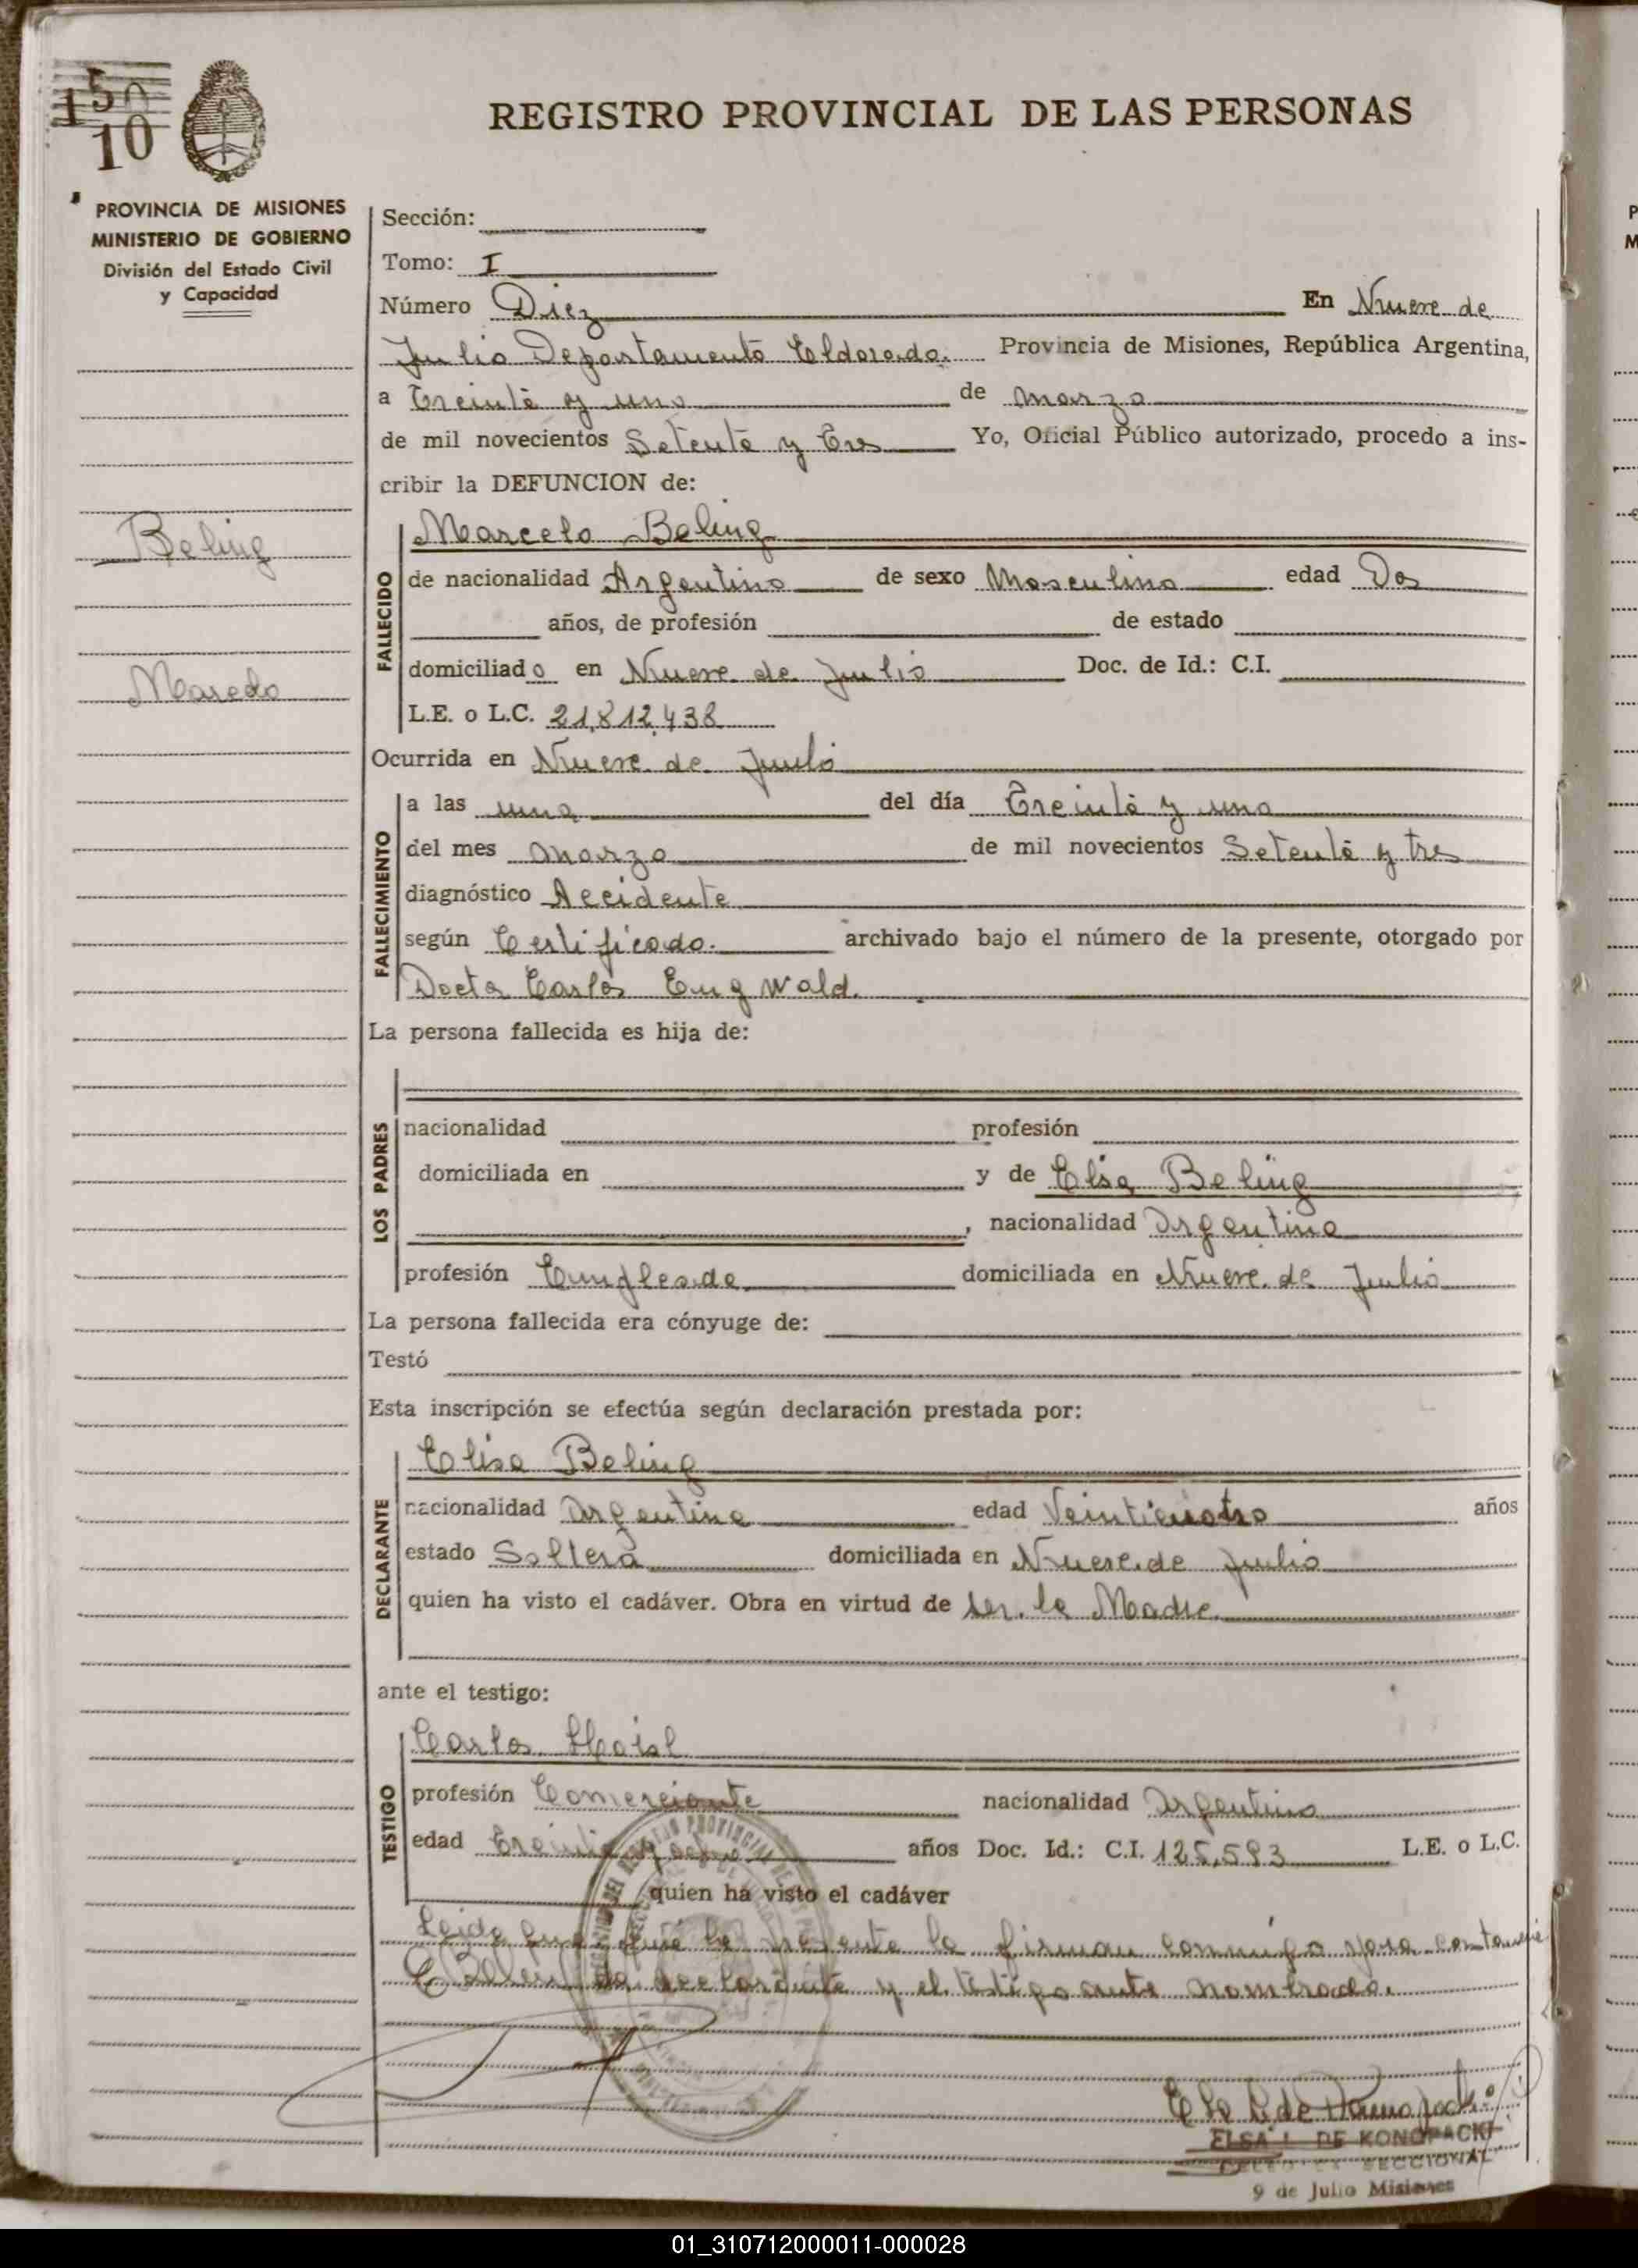 10
REGISTRO PROVINCIAL DE LAS PERSONAS
PROVINCIA DE MISIONES
MINISTERIO DE GOBIERNO
División del Estado Civil
y Capacidad
Sección:
Tomo: I
Número Diez En Nueve de
Julio Departamento Eldorado. Provincia de Misiones, República Argentina,
a Treinta y uno de marzo
de mil novecientos Setenta y Tres Yo, Oficial Público autorizado, procedo a ins-
cribir la DEFUNCION de:
Beling
Marcelo
FALLECIDO
Marcelo Beling
de nacionalidad Argentino de sexo Masculino edad Dos
años, de profesión de estado
domiciliado en Nueve de Julio Doc. de Id.: C.I.
L.E. o L.C. 21.812.438
Ocurrida en Nueve de Julio
FALLECIMIENTO
a las una del día Treinta y uno
del mes marzo de mil novecientos Setenta y tres
diagnóstico Accidente
según Certificado. archivado bajo el número de la presente, otorgado por
Doctor Carlos Eng wald.
La persona fallecida es hija de:
LOS PADRES
nacionalidad profesión
domiciliada en y de Elsa Beling
, nacionalidad Argentina
profesión Empleada domiciliada en Nueve de Julio
La persona fallecida era cónyuge de:
Testó
Esta inscripción se efectúa según declaración prestada por:
DECLARANTE
Elisa Beling
nacionalidad Argentina edad Veinticuatro años
estado Soltera domiciliada en Nueve de Julio
quien ha visto el cadáver. Obra en virtud de ser la Madre
ante el testigo:
TESTIGO
Carlos
profesión Comerciante nacionalidad Argentino
edad Treinta y años Doc. Id.: C.I. 125.593 L.E. o L.C.
quien ha visto el cadáver
Leida que fué la presente la firman conmigo para constancia
la declarante y el testigo ante nombrado.
ELSA L. DE KONOPACKI
SECCIONAL
9 de Julio Misiones
01_310712000011-000028